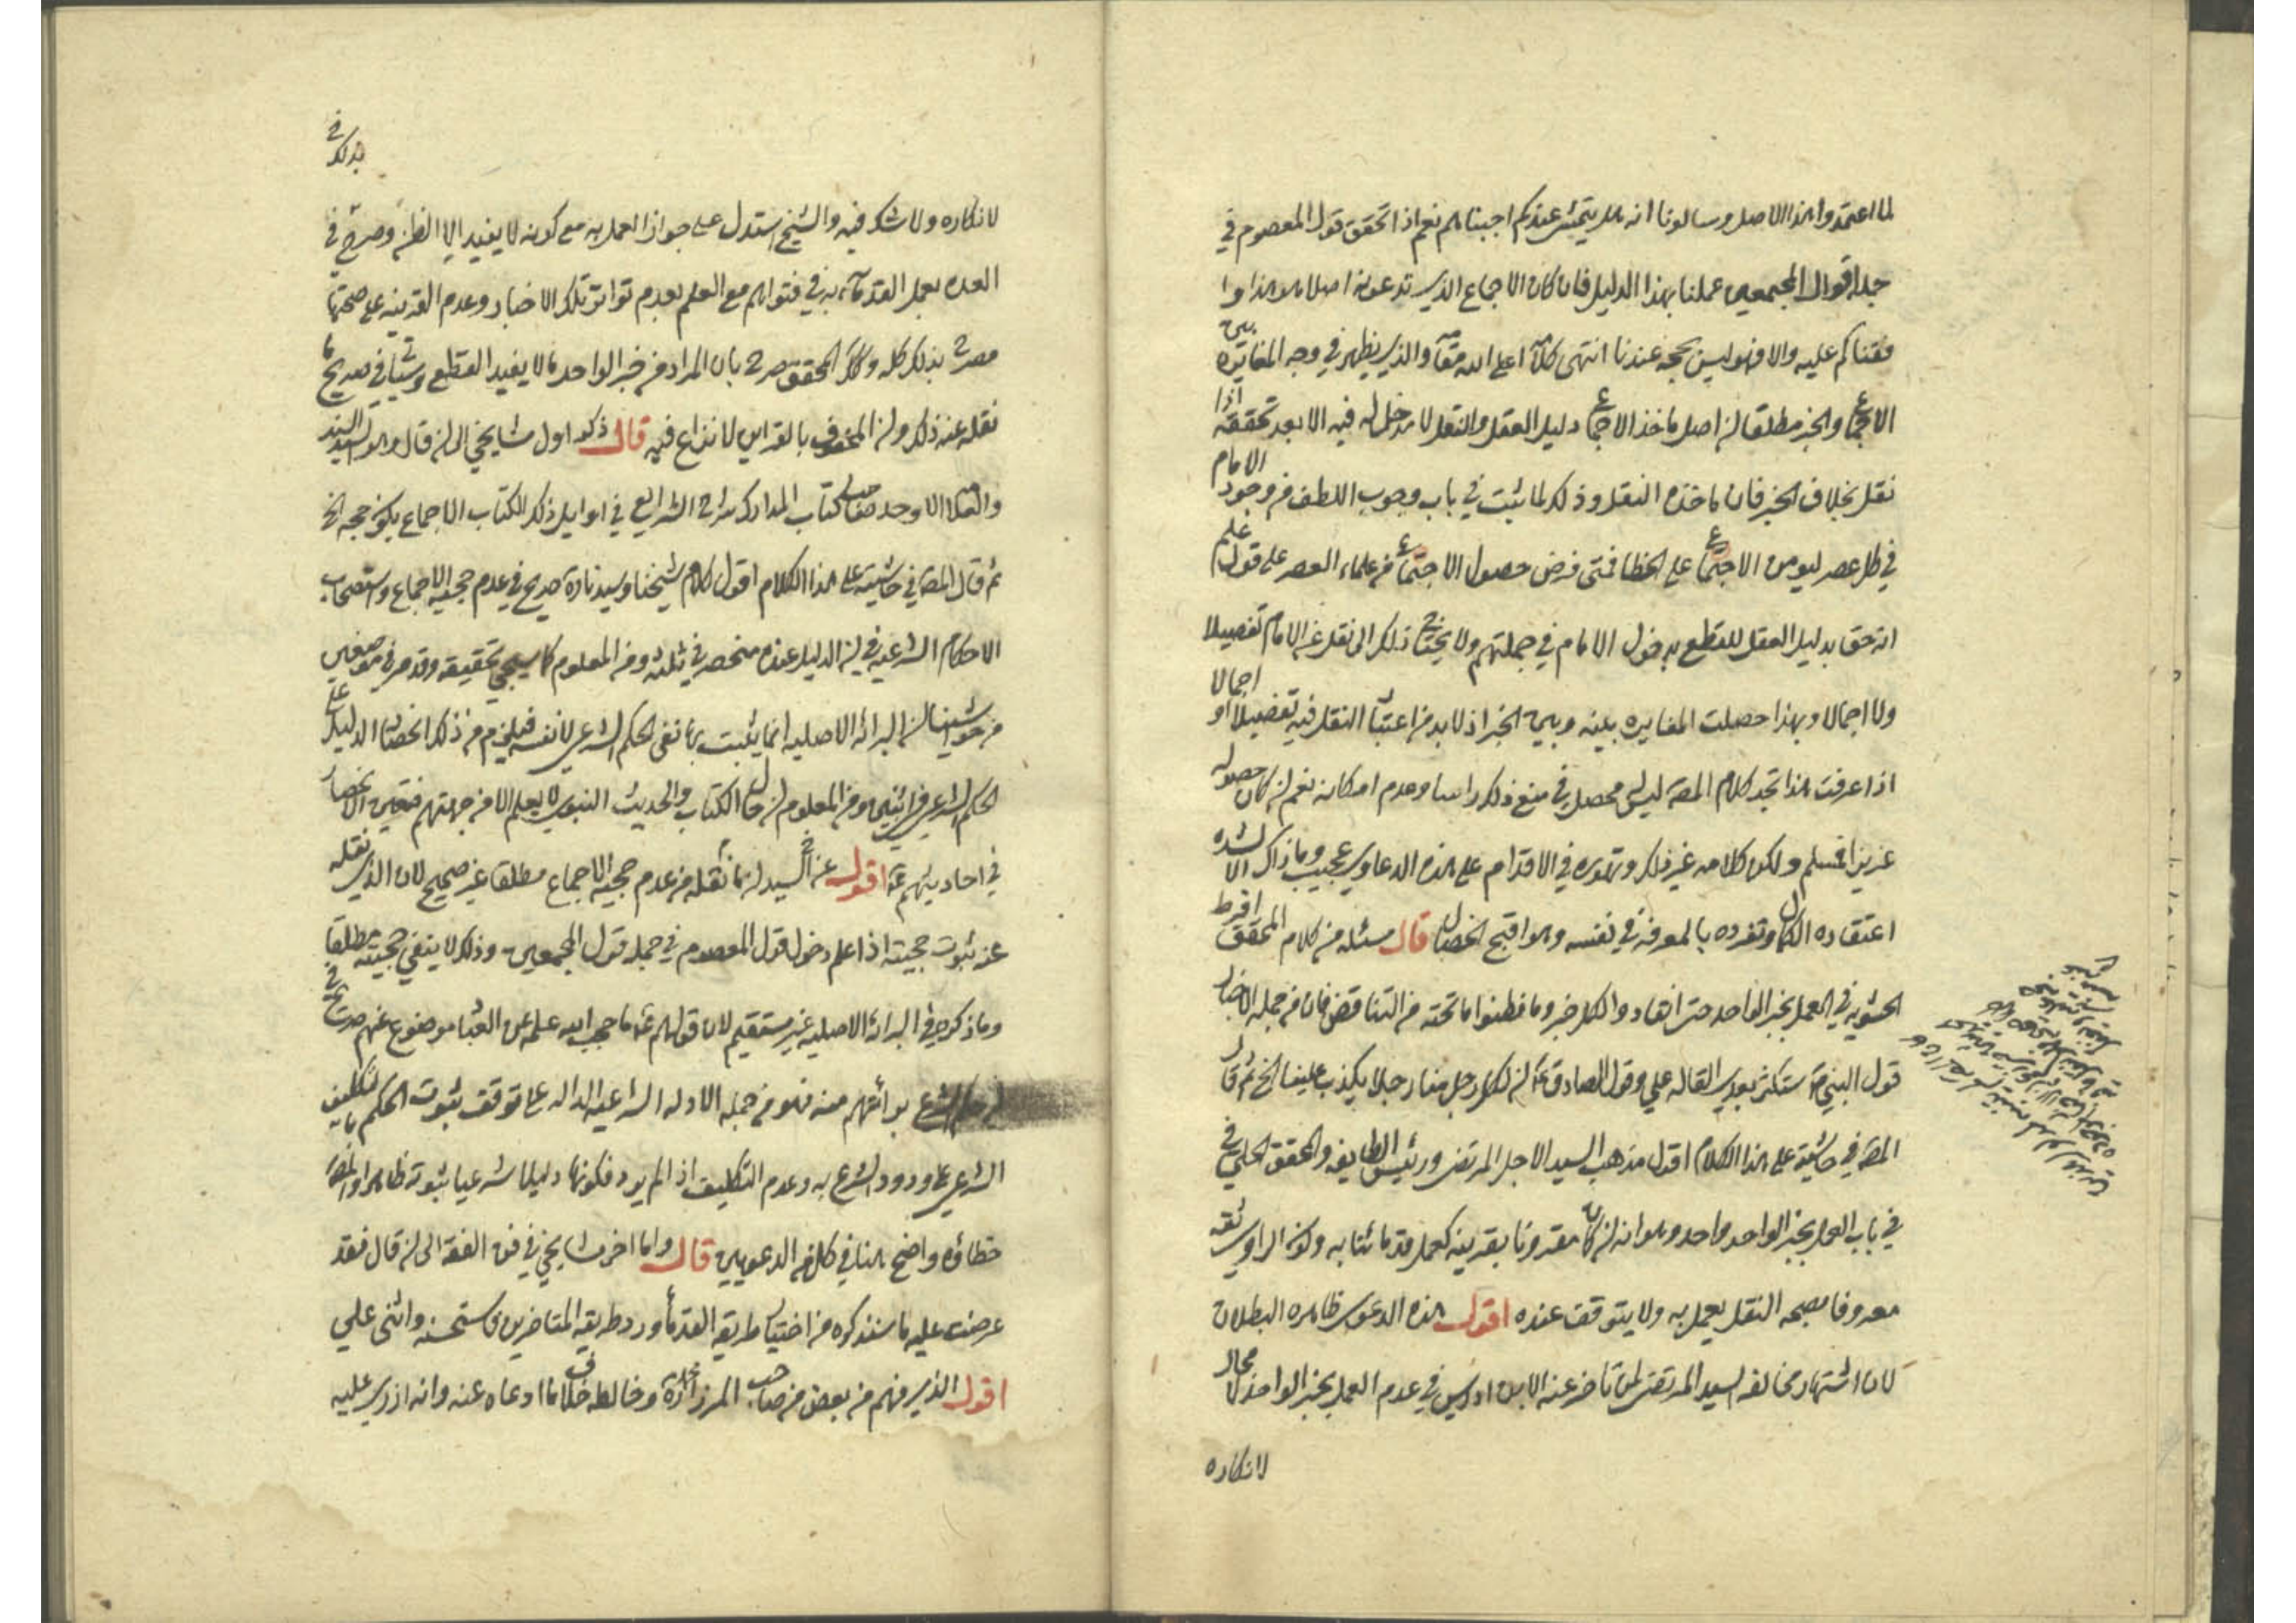 لما اعتمدوا هذا الاصل وسالونا انه هل يتمشى عندكم اجبناهم نعم اذا تحقق قول المعصوم في
جملة اقوال المجمعين عملنا بهذا الدليل فان كان الاجماع الذي تدعونه اصلا هو هذا وا
فقناكم عليه والا فهو ليس بحجة عندنا انتهى كلامه اعلى الله مقامه والذي يظهر في وجه المغايرة بين
الاجماع والخبر مطلقا ان اصل ماخذ الاجماع دليل العقل والنقل لا مدخل له فيه الا بعد تحققه اذا
نقل بخلاف الخبر فان ماخذه النقل وذلك لما ثبت في باب وجوب اللطف من وجود الامام
في كل عصر ليردع من الاجتماع على الخطا فمتى فرض حصول الاجتماع من علماء العصر على قول علم
انه حق بدليل العقل للقطع بدخول الامام في جملتهم ولا يحتاج ذلك الى نقل عن الامام تفصيلا
ولا اجمالا وبهذا حصلت المغايرة بينه وبين الخبر اذ لا بد من اعتبار النقل فيه تفصيلا او اجمالا
اذا عرفت هذا تجد كلام المصه ليس له محصل في منع ذلك راسا وعدم امكانه نعم ان كان حصوله
عزيزا فمسلم ولكن كلامه غير ذلك وتهوره في الاقدام على هذه الدعاوي عجيب وما ذاك الا لشدة
اعتقاده الكمال وتفرده بالمعرفة في نفسه وهو اقبح الخصال قال مسئله من كلام المحقق افرط
الحشوية في العمل بخبر الواحد حتى انقادوا لكل خبر وما فطنوا ما تحته من التناقض فان من جملة الاخبار
قول النبي ص ستكثر بعدي القالة علي وقول الصادق ع ان لكل رجل منا رجلا يكذب علينا الخ ثم قال
المصه في حاشيته على هذا الكلام اقول مذهب السيد الاجل المرتضى ورئيس الطايفة والمحقق الحلي
في باب العمل بخبر الواحد واحد وهو انه ان كان مقرونا بقرينة كعمل قدمائنا به وكون الراوي ثقة
معروفا بصحة النقل يعمل به ولا يتوقف عنده اقول هذه الدعوى ظاهرة البطلان
لان اشتهار مخالفة السيد المرتضى لمن تاخر عنه الا ابن ادريس في عدم العمل بخبر الواحد لا مجال
لانكاره
لانكاره ولا شك فيه والشيخ استدل على جواز العمل به مع كونه لا يفيد الا الظن وصرح في
العدة بعمل القدماء به في فتواهم مع العلم بعدم تواتر تلك الاخبار وعدم القرينة على صحتها
مصرح بذلك كله وكذا المحقق صرح بان المراد من خبر الواحد ما لا يفيد القطع وسياتي تصريح ما
نقله عنه ذلك وان المحفوف بالقراين لا نزاع فيه قال ذكر اول مشايخي الى ان قال وهو السيد السند
والعلامة الاوحد صاحب كتاب المدارك شرح الشرايع في اوايل ذلك الكتاب الاجماع يكون حجة الخ
ثم قال المصه في حاشيته على هذا الكلام اقول كلام شيخنا وسيدنا ره صريح في عدم حجية الاجماع واستصحاب
الاحكام الشرعية في ان الدليل عنده منحصر في ثلثة ومن المعلوم كما سيجي تحقيقه وقد مر في موضعين
من حواشينا ان البرائة الاصلية انما يثبت بها نفي الحكم الشرعي لا نفسه فيلزم من ذلك انحصار الدليل على
الحكم الشرعي في اثنين ومن المعلوم ان حال الكتاب والحديث النبوي لا يعلم الا من جهتهم فتعين الانحصار
في احاديثهم ع اقول عن السيد له ما نقله من عدم حجية الاجماع مطلقا غير صحيح لان الذي نقله
عنه ثبوت حجيته اذا علم دخول قول المعصوم في جملة قول المجمعين وذلك لا ينفي حجيته مطلقا
وما ذكره في البرائة الاصلية غير مستقيم لان قولهم ع ما حجب الله علمه عن العباد موضوع عنهم صريح في
ان حكم الشرع برائتهم منه فهو من جملة الادلة الشرعية الدالة على توقف ثبوت الحكم بالتكليف
الشرعي على ورود الشرع به وعدم التكليف اذا لم يرد فكونها دليلا شرعيا ثبوته ظاهر والمصه
خطاؤه واضح هنا في كل من الدعويين قال واما اخر مشايخي في فن الفقه الى ان قال فقد
عرضت عليه ما سنذكره من اختيار طريقة القدماء ورد طريقة المتاخرين فاستحسنه واثنى علي
اقول الذي فهم من بعض من صاحب الميرزا محمد ره وخالطه خلاف ما ادعاه عنه وانه ازرى عليه